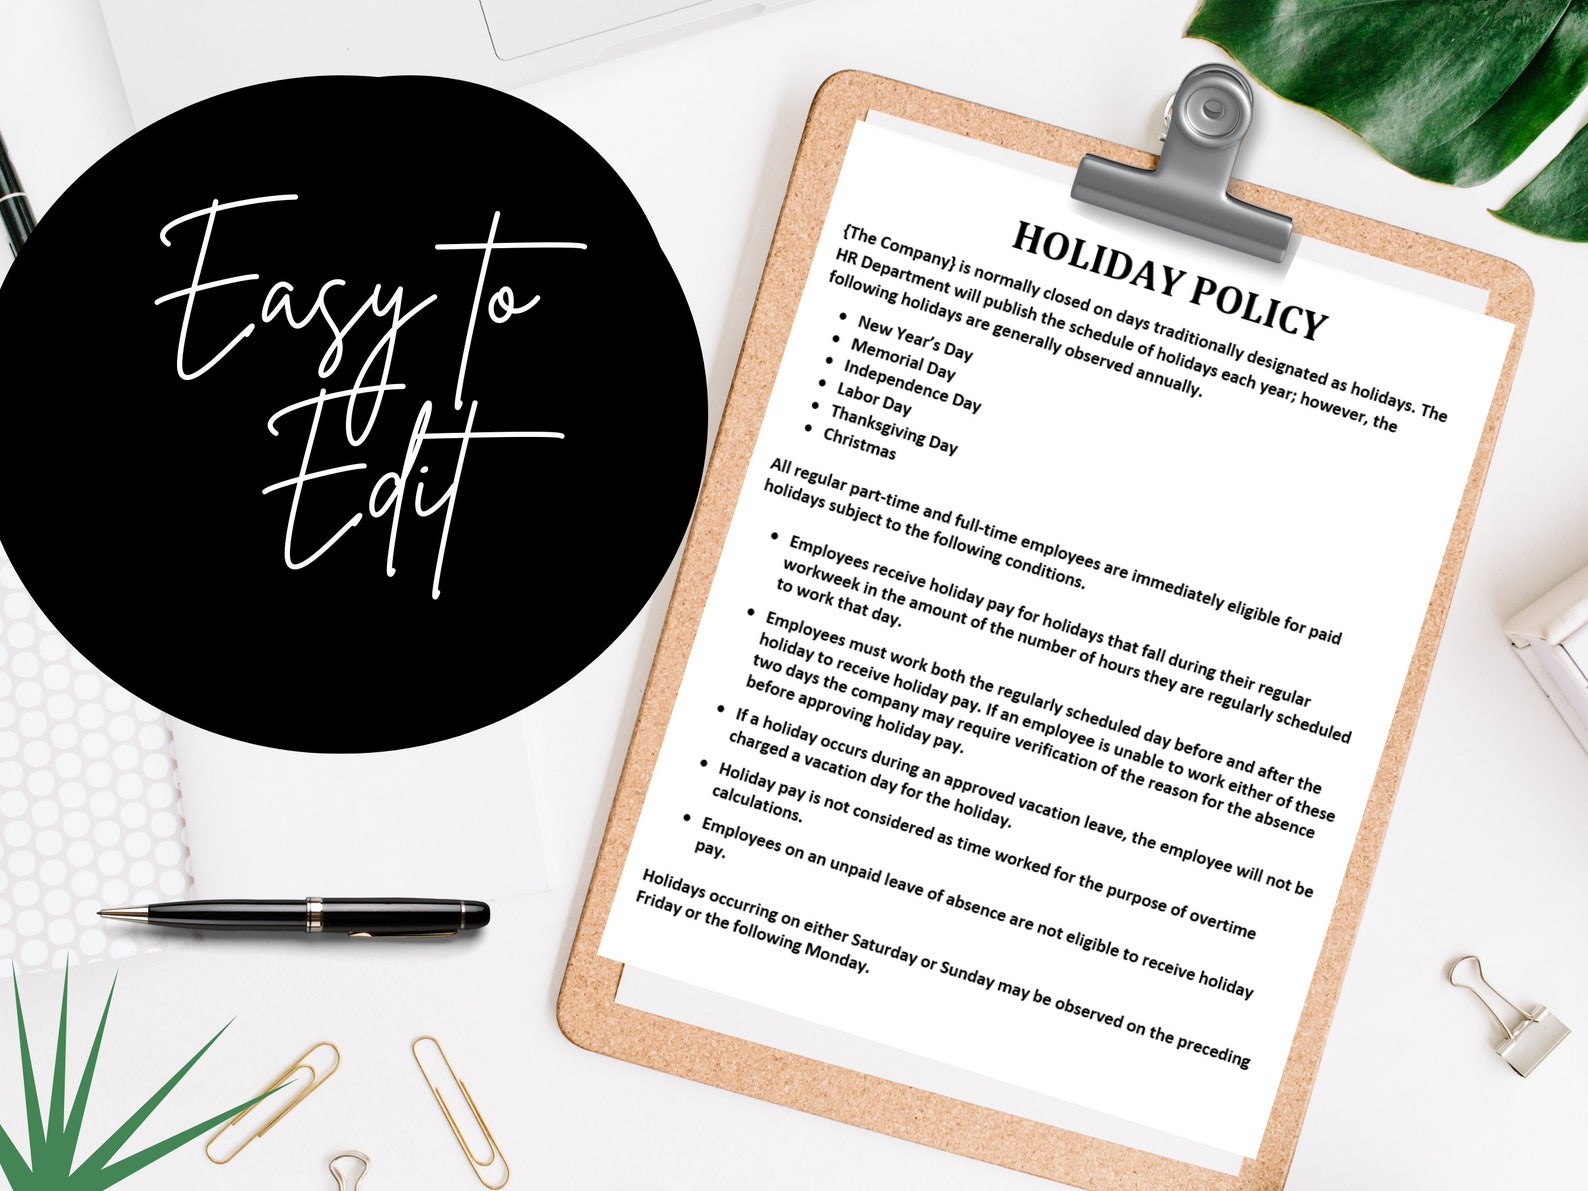 Easy to
Edit
HOLIDAY POLICY
{The Company} is normally closed on days traditionally designated as holidays. The
HR Department will publish the schedule of holidays each year; however, the
following holidays are generally observed annually.
• New Year's Day
• Memorial Day
• Independence Day
• Labor Day
• Thanksgiving Day
• Christmas
All regular part-time and full-time employees are immediately eligible for paid
holidays subject to the following conditions.
• Employees receive holiday pay for holidays that fall during their regular
workweek in the amount of the number of hours they are regularly scheduled
to work that day.
• Employees must work both the regularly scheduled day before and after the
holiday to receive holiday pay. If an employee is unable to work either of these
two days the company may require verification of the reason for the absence
before approving holiday pay.
• If a holiday occurs during an approved vacation leave, the employee will not be
charged a vacation day for the holiday.
• Holiday pay is not considered as time worked for the purpose of overtime
calculations.
• Employees on an unpaid leave of absence are not eligible to receive holiday
pay.
Holidays occurring on either Saturday or Sunday may be observed on the preceding
Friday or the following Monday.